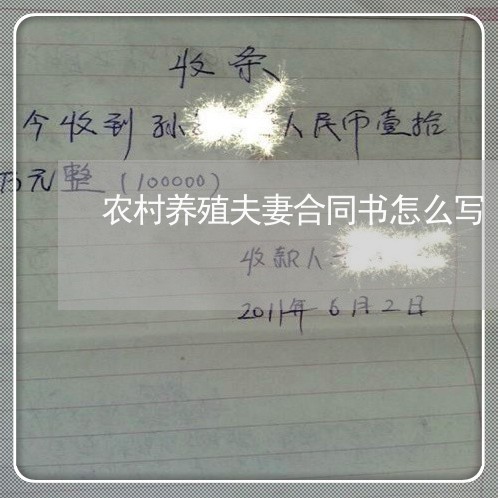 收条
今收到孙 人民币壹拾
万元整(100000)
农村养殖夫妻合同书怎么写
收款人
2011年6月2日